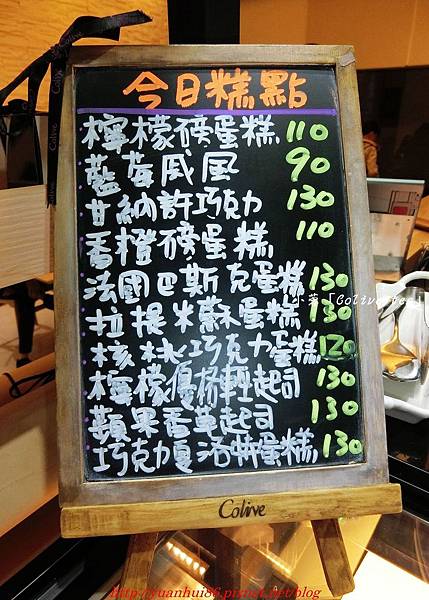 Colive
今日糕點
檸檬磅蛋糕 110
藍莓戚風 90
甘納許巧克力 130
香橙磅蛋糕 110
法國巴斯克蛋糕 130
拉提米蘇蛋糕 130
核桃巧克力蛋糕 120
檸檬優格輕起司 130
蘋果香草起司 130
巧克力夏洛特蛋糕 130
Colive
http://yuanhui86.pixnet.net/blog